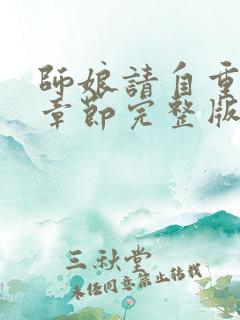 師娘請自重
章節完整版
三秋堂
未經同意禁止轉載